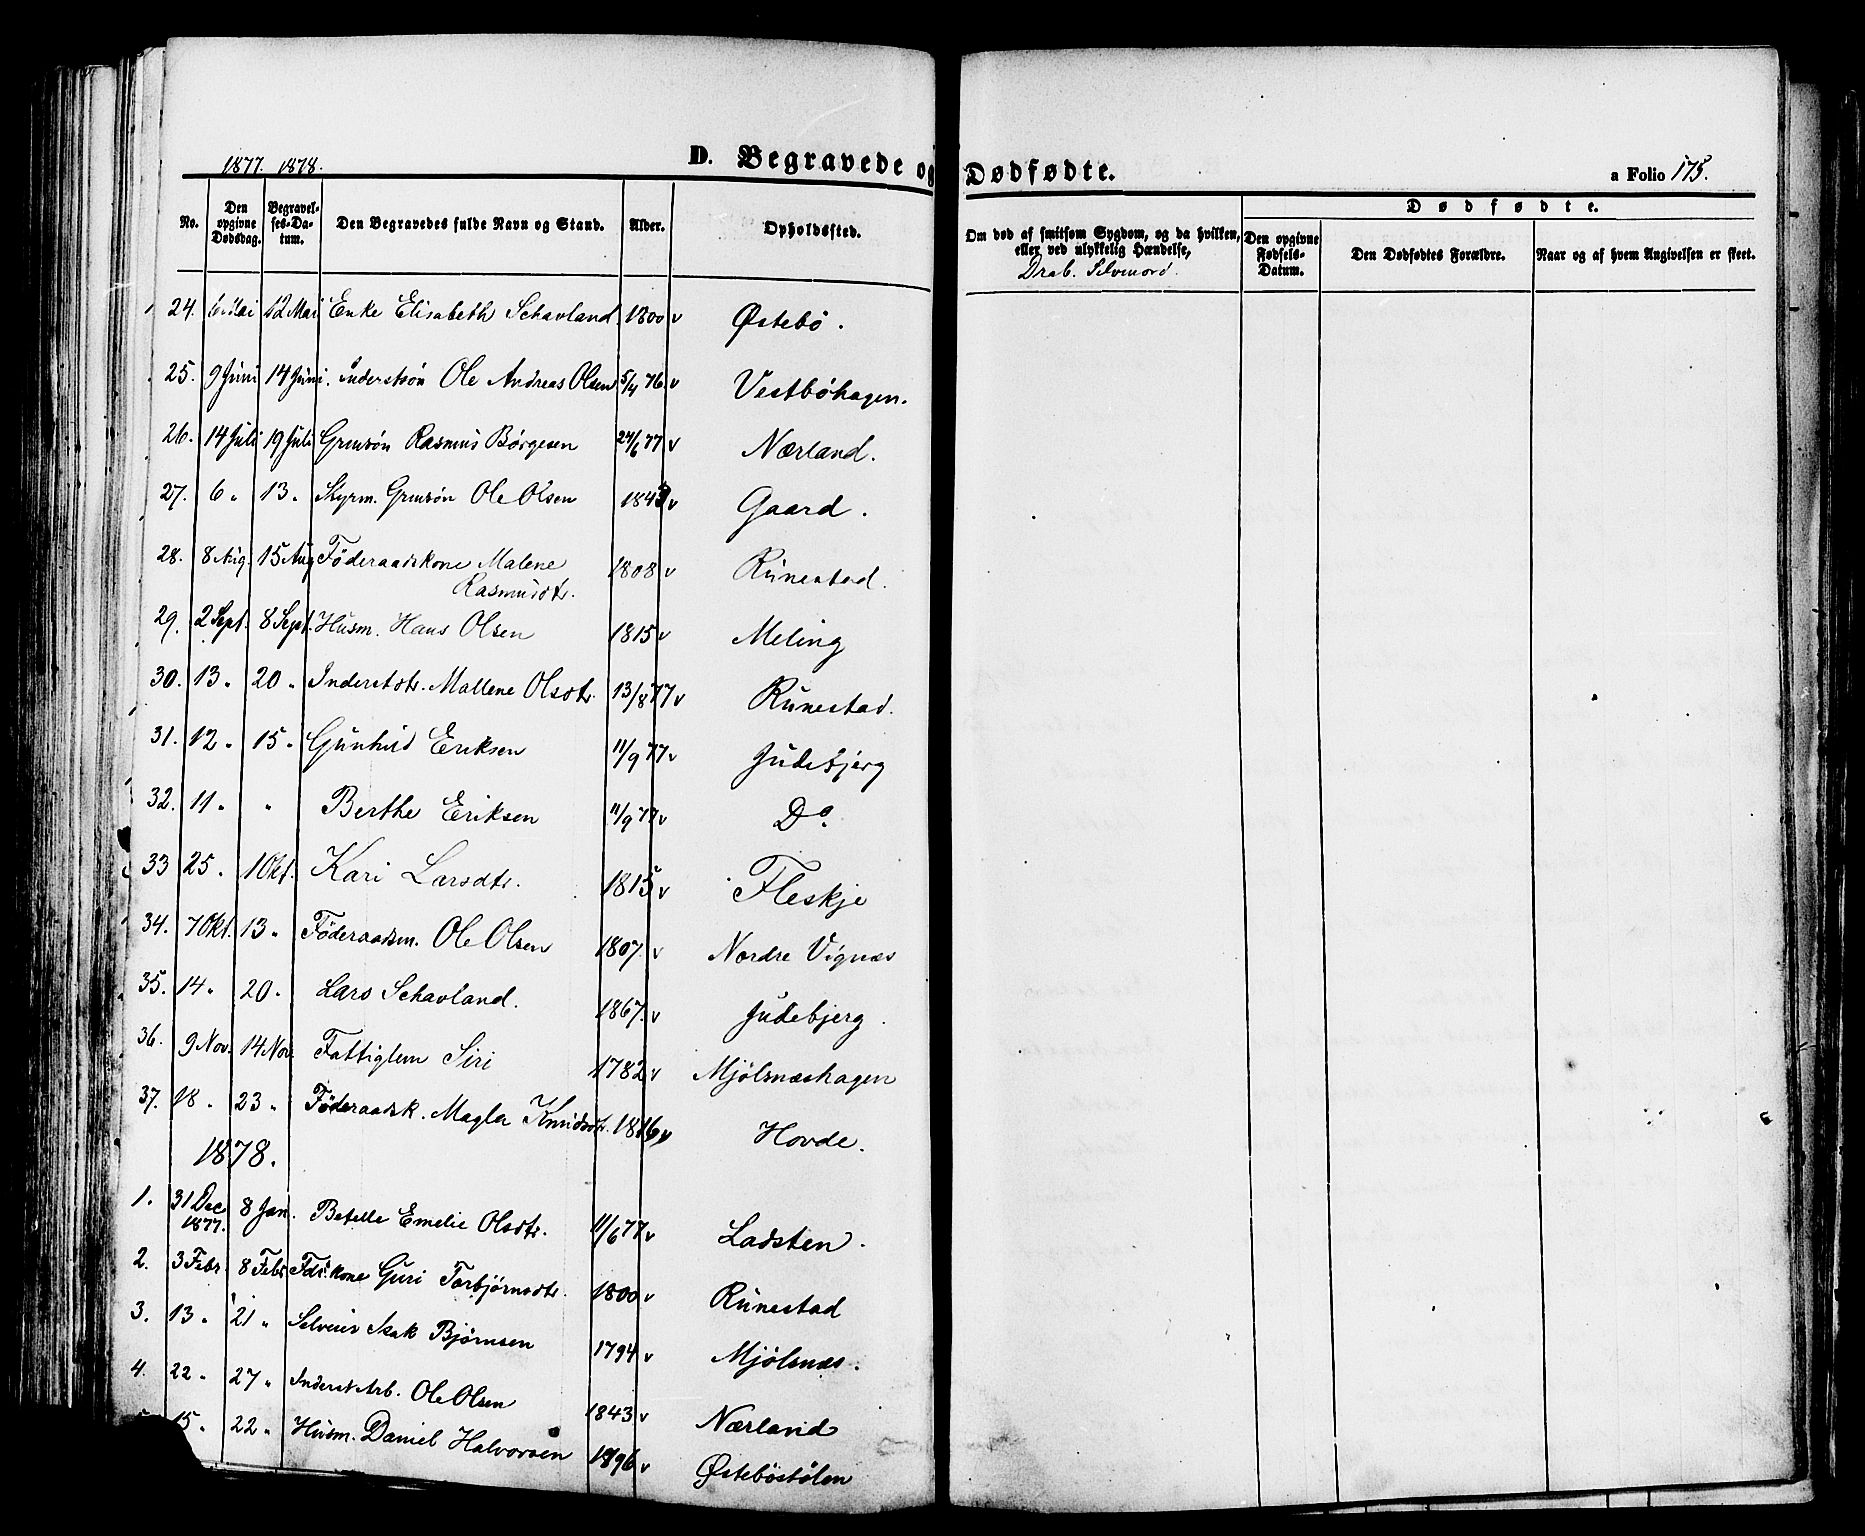 1877. 1878.
D. Begravede og Dødfødte.
a Folio 175.
No. Den opgivne Dødsdag. Begravelses-Datum. Den Begravedes fulde Navn og Stand. Alder. Opholdssted. Om død af smitsom Sygdom, og da hvilken, eller ved ulykkelig Hændelse, Drab. Selvmord. Dødfødte. Den opgivne Fødsels-Datum. Den Dødfødtes Forældre. Naar og af hvem Angivelsen er skeet.
24. 6 Mai 12 Mai Enke Elisabeth Schavland 1800 v Østebö.
25. 9 Juni 14 Juni. Inderstsön Ole Andreas Olsen 5/4 76. v Vestböhagen.
26. 14 Juli 19 Juli Grmsön Rasmus Börgesen 24/6 77 v Nærland.
27. 6 " 13 " Styrm. Grmsön Ole Olsen 1843 v Gaard.
28. 8 Aug. 15 Aug Föderaadskone Malene
Rasmusdtr. 1808 v Runestad.
29. 2 Sept. 8 Sept. Husm. Hans Olsen 1815 v Meling
30. 13 " 20 " Inderstdtr. Mallene Olsdtr. 13/8 77 v Runestad.
31. 12 " 15 " Gunhild Eriksen 11/9 77 v Judebjerg
32. 11 " " Berthe Eriksen 11/9 77 v Do.
33 25 " 1 Okt. Kari Larsdtr. 1815 v Fleskje
34. 7 Okt. 13 " Föderaadsm. Ole Olsen 1807. v Nordre Vignæs
35. 14 " 20 " Lars Schavland. 1867. v Judebjerg.
36. 9 Nov. 14 Nov. Fattiglem Siri 1782 v Mjölsnæshagen
37. 18 " 23 " Föderaadsk. Magla Knudsdtr. 1816 v Hovde.
1878.
1. 31 Dec 1877. 8 Jan. Betelle Emelie Olsdtr. 11/6 77 v Ladsten.
2. 3 Febr. 8 Febr Fdrkone Guri Torbjörnsdtr. 1800 v Runestad
3. 13 " 21 " Selveier Isak Björnsen 1794 v Mjölsnæs.
4. 22 " 27 " Inderst Arb. Ole Olsen 1843 v Nærland
15 " 22 " Husm. Daniel Halvorsen v Östeböstölen